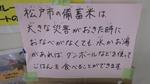 松戸市の備蓄米は
大きな災害がおきた時に
おなべがなくても、水とお湯
があれば、ダンボールなどを使い
ごはんを食べることができます